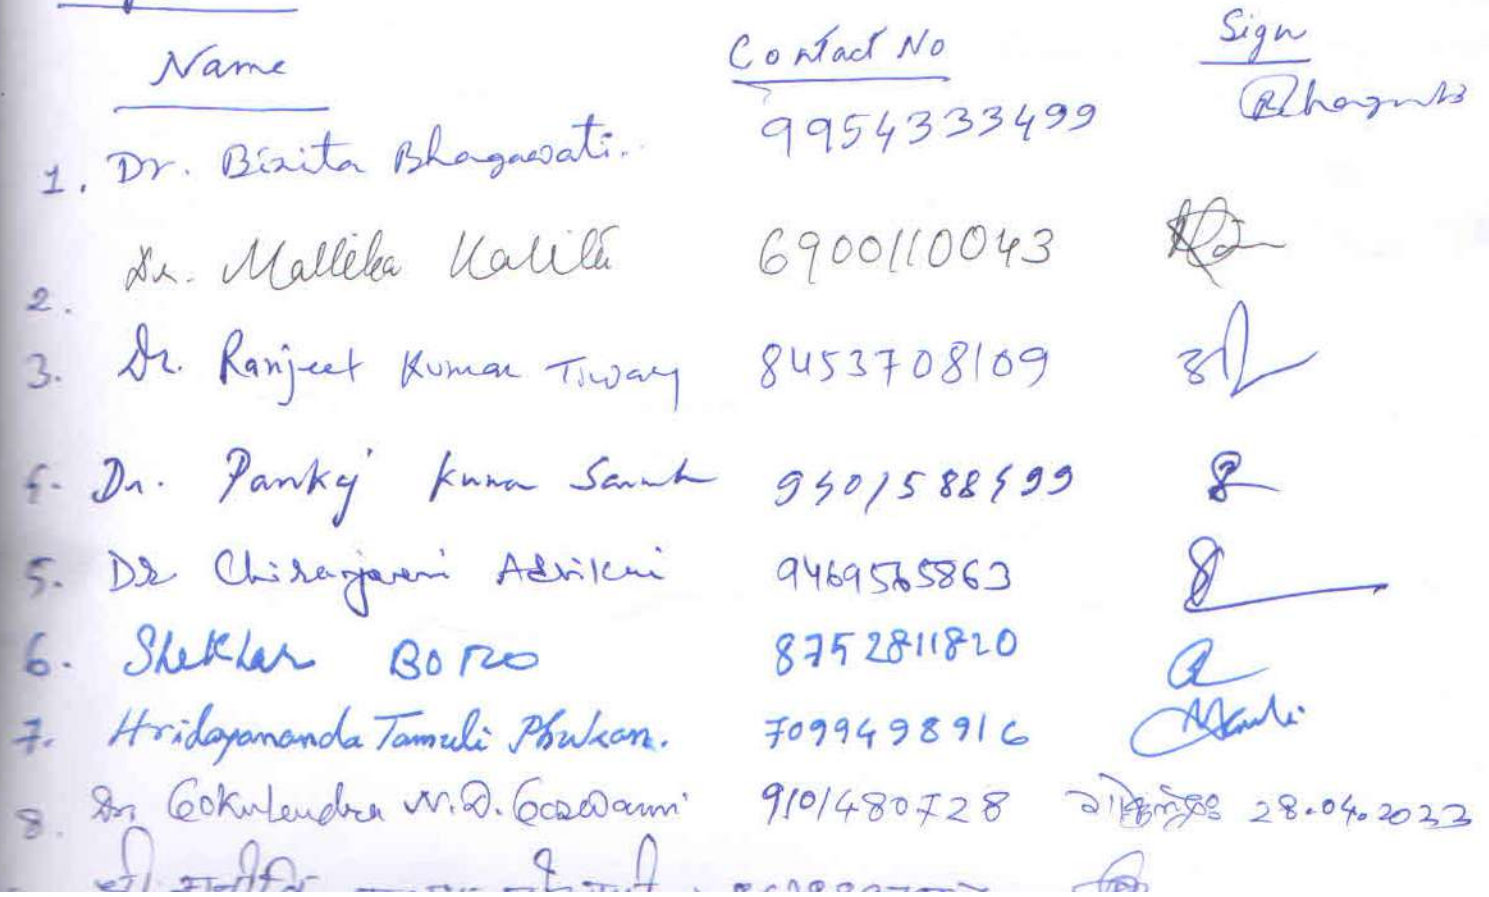 Name Contact No Sign
1. Dr. Binita Bhagawati. 9954333499
2. Dr. Mallika Kalita 6900110043
3. Dr. Ranjeet Kumar Tiwary 8453708109
4. Dr. Pankaj Kumar
5. Dr Chiranjeevi Adhikari
6. Shekhar BORO 8752811820
7. Hridayananda Tamuli Phukan. 7099498916
8. Dr. Gokulendra N.D. Goswami 9101480728 28.04.2023